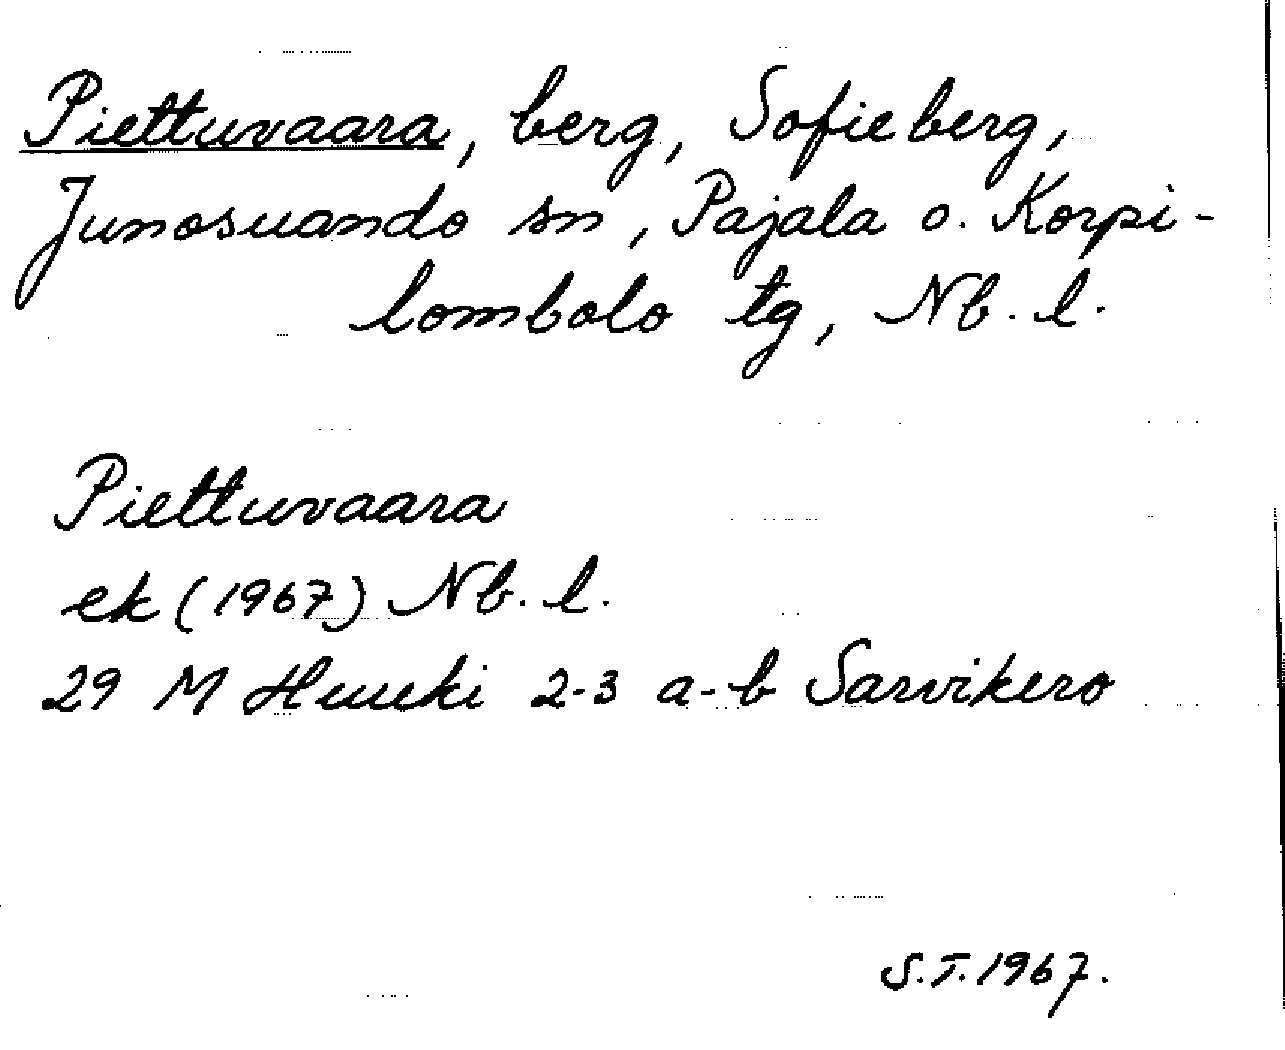 Piettuvaara, berg, Sofieberg,
Junosuando sn, Pajala o. Korpi-
lombolo tg, Nb. l.
Piettuvaara
ek (1967) Nb. l.
29 M Huuki 2-3 a-b Sarvikero
S.T. 1967.